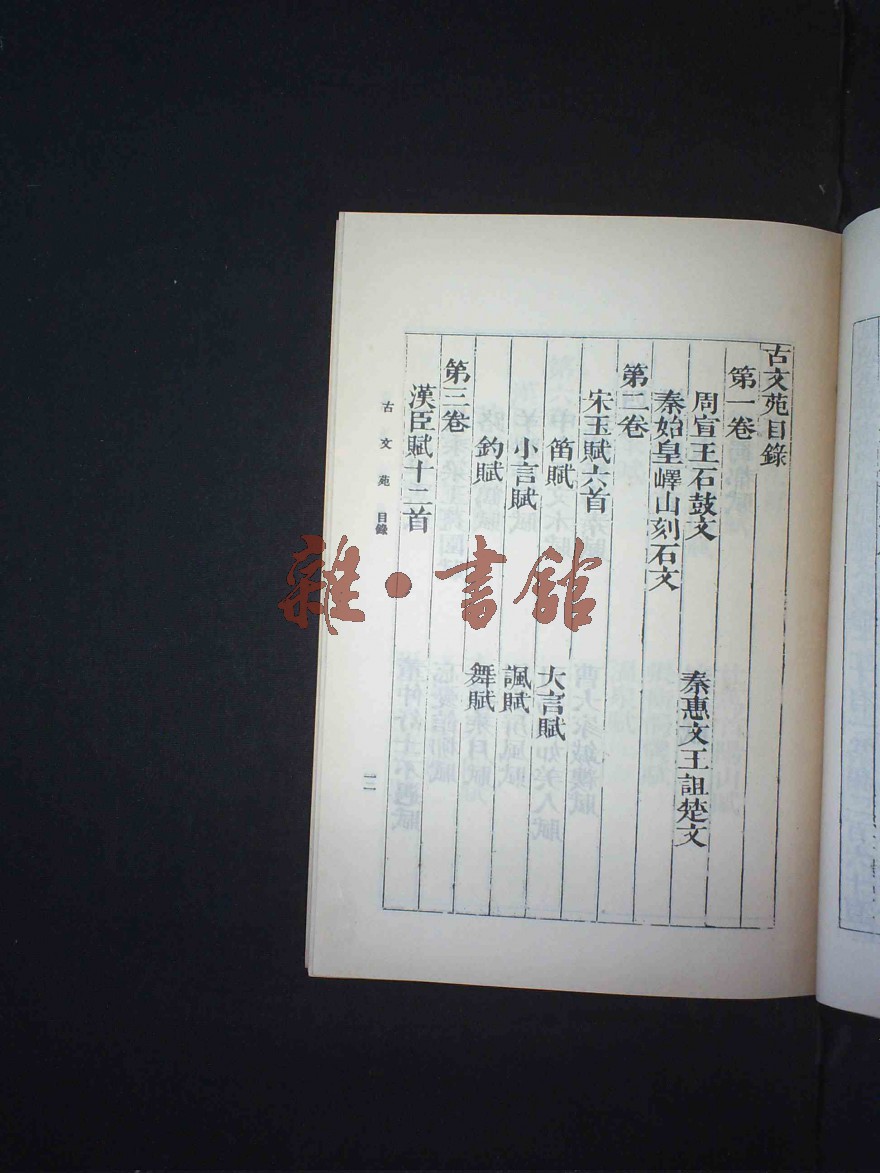 古文苑目錄
第一卷
周宣王石鼓文　秦惠文王詛楚文
秦始皇嶧山刻石文
第二卷
宋玉賦六首
笛賦　大言賦
小言賦　諷賦
釣賦　舞賦
第三卷
漢臣賦十二首
古文苑 目錄
一二
雜·書館